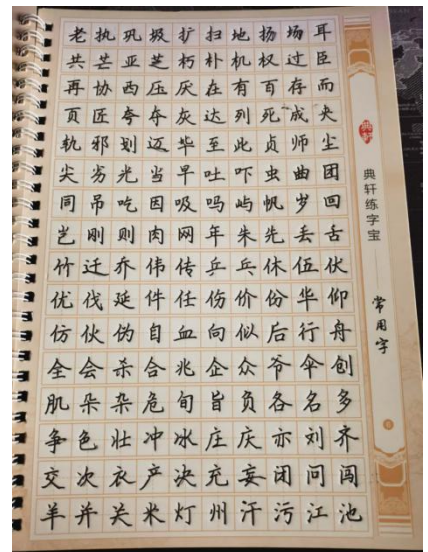 老执巩圾扩扫地扬场耳
共芒亚芝朽朴机权过臣
再协西压厌在有百存而
页匠夸夺灰达列死成夹
轨邪划迈毕至此贞师尘
尖劣光当早吐吓虫曲团
同吊吃因吸吗屿帆岁回
岂刚则肉网年朱先丢舌
竹迁乔伟传乒乓休伍伏
优伐延件任伤价份华仰
仿伙伪自血向似后行舟
全会杀合兆企众爷伞创
肌朵杂危旬旨负各名多
争色壮冲冰庄庆亦刘齐
交次衣产决充妄闭问闯
羊并关米灯州汗污江池
典轩
典轩练字宝
常用字